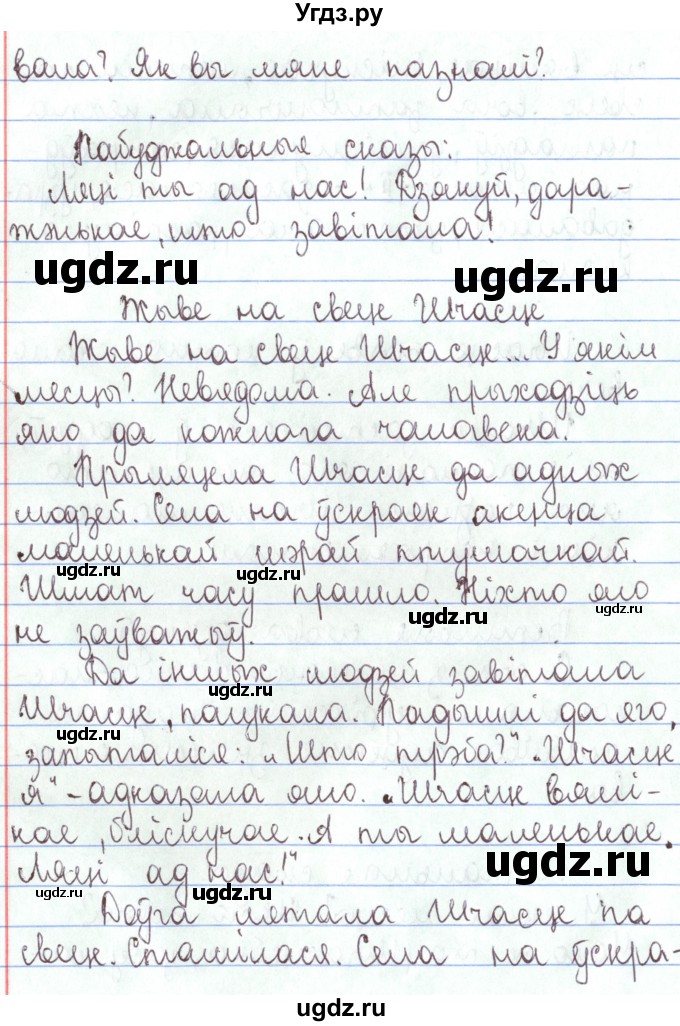 Угдз.ру
вала? Як вы мяне пазналі?
Пабуджальныя сказы:
Ляці ты ад нас! Дзякуй, дара-
жэнькае, што завітала!
ugdz.ru
ugdz.ru
Жыве на свеце Шчасце
Жыве на свеце Шчасце... У якім
месцы? Невядома. Але прыходзіць
яно да кожнага чалавека!
Прыляцела Шчасце да адных
людзей. Села на ўскраек акенца
маленькай шэрай птушачкай.
ugdz.ru
ugdz.ru
Шмат часу прайшло. Ніхто яго
ugdz.ru
не заўважыў.
Да іншых людзей завітала
ugdz.ru
Шчасце, пашукала. Падышлі да яго,
запыталіся: „Што трэба?“ „Шчасце
я“ - адказала яно. „Шчасце вялі-
кае, бліскучае. А ты маленькае.
ugdz.ru
Ляці ад нас!“
ugdz.ru
ugdz.ru
Доўга лятала Шчасце па
свеце. Стамілася. Села на ўскра-
ugdz.ru